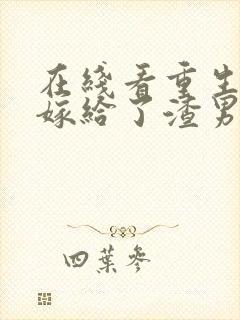 在綫看重生
嫁給了渣男
四葉參